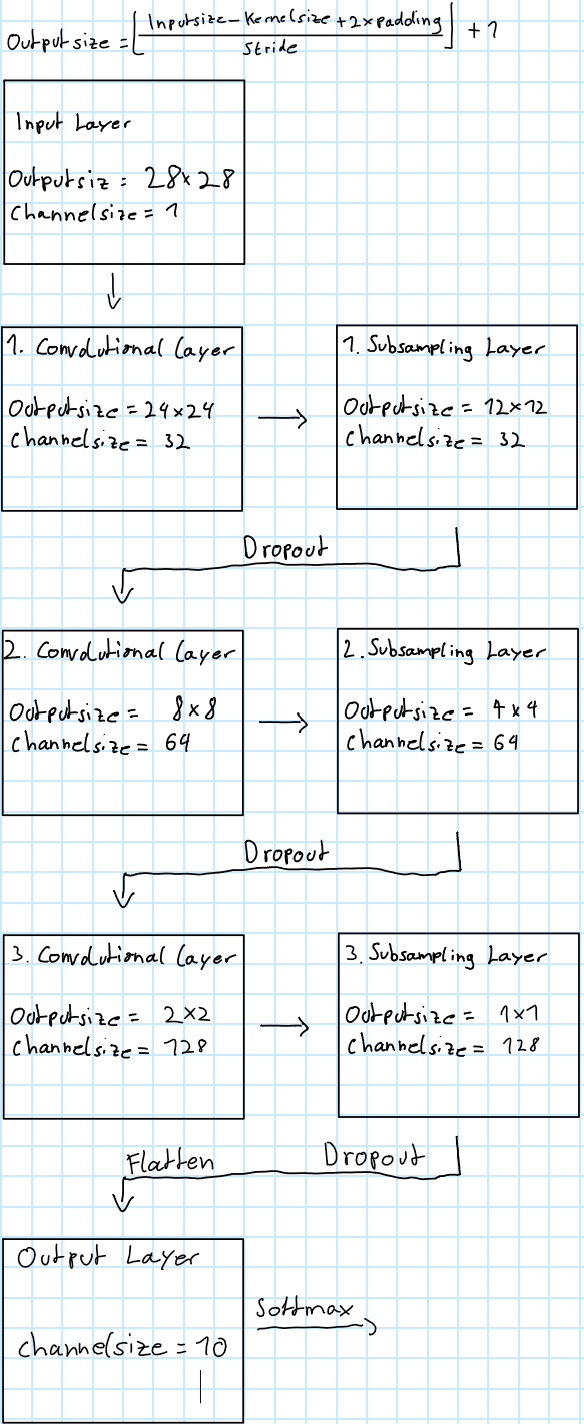 Outputsize = ⌊(Inputsize - Kernelsize + 2 x padding) / Stride⌋ + 1
Input Layer
Outputsiz = 28x28
Channelsize = 1
1. Convolutional Layer
Outputsize = 24x24
Channelsize = 32
1. Subsampling Layer
Outputsize = 12x12
Channelsize = 32
Dropout
2. Convolutional Layer
Outputsize = 8x8
Channelsize = 64
2. Subsampling Layer
Outputsize = 4x4
Channelsize = 64
Dropout
3. Convolutional Layer
Outputsize = 2x2
Channelsize = 128
3. Subsampling Layer
Outputsize = 1x1
Channelsize = 128
Flatten Dropout
Output Layer
Channelsize = 10
Softmax